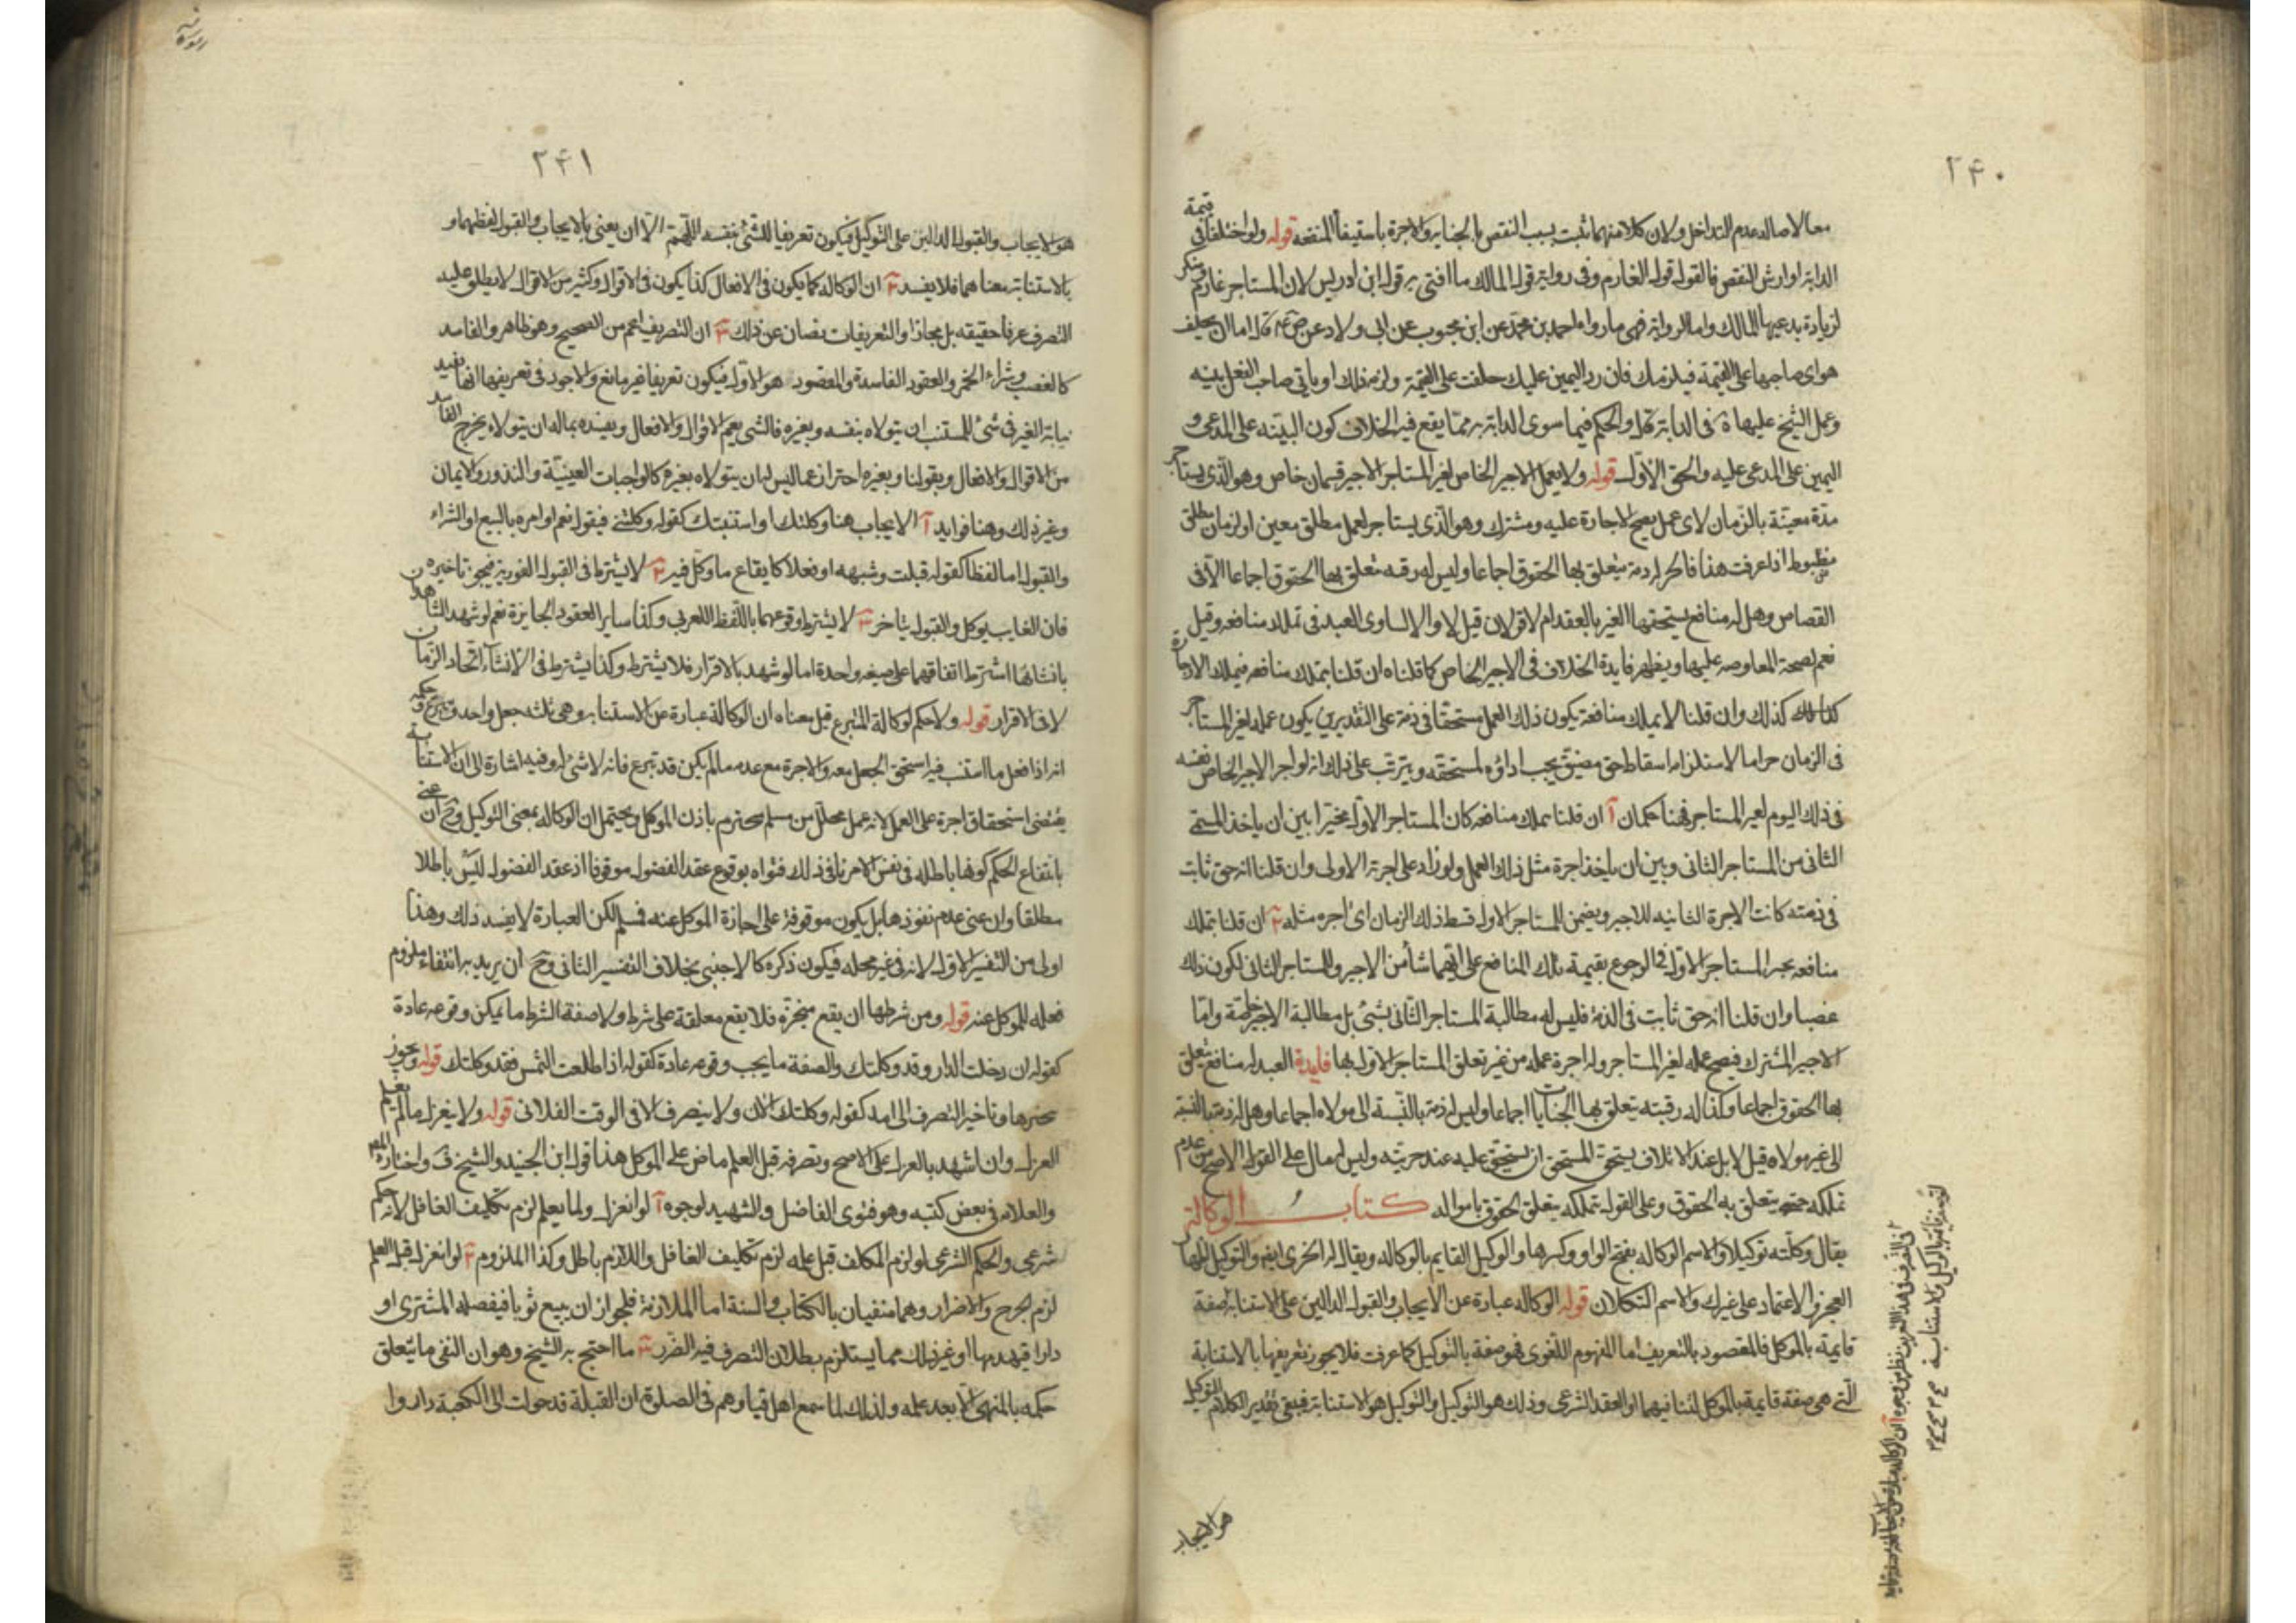 ۲۴۰
معا لاصاله عدم التداخل ولان كلا منهما ثبت بسبب النقص بالجنايه والاجرة باستيفاء المنفعه قوله ولو اختلفا فى قيمة
الدابة او ارش النقص فالقول قول الغارم وفى رواية قول المالك ما افتى به قول ابن ادريس لان المستاجر غارم ومنكر
لزيادة يدعيها المالك واما الرواية فهى ما رواه احمد بن محمد عن ابن محبوب عن ابى ولاد عن اما ان يحلف
هو اى صاحبها على القيمة فيلزمك فان رد اليمين عليك حلفت على القيمة ولزمه ذلك او ياتى صاحب البغل بينه
وعمل الشيخ عليها فى الدابة والحكم فيما سوى الدابة مما يقع فيه الخلاف كون البينه على المدعى و
اليمين على المدعى عليه والحق الاول قوله ولا يعمل الاجير الخاص لغير المستاجر الاجير قسمان خاص وهو الذى يستاجر
مدة معينة بالزمان لاى عمل يصح الاجارة عليه ومشترك وهو الذى يستاجر لعمل مطلق معين او لزمان مطلق
مضبوط اذا عرفت هذا فالحر له ذمة يتعلق بها الحقوق اجماعا وليس له رقبه تتعلق بها الحقوق اجماعا الا فى
القصاص وهل له منافع يستحقها الغير بالعقد ام لا قولان قيل لا والا لساوى العبد فى تملك منافعه وقيل
نعم لصحة المعاوضه عليها ويظهر فايدة الخلاف فى الاجير الخاص كما قلناه ان قلنا بتملك منافعه فيملك الاجارة
كذلك وان قلنا لا يملك منافعه يكون ذلك العمل مستحقا فى ذمة على التقديرين يكون عمله لغير المستاجر
فى الزمان حراما لاستلزامه اسقاط حق مضيق يجب اداؤه لمستحقه ويترتب على ذلك انه لو اجر الاجير الخاص نفسه
فى ذلك اليوم لغير المستاجر فهنا حكمان آ ان قلنا يملك منافعه كان المستاجر الاول مخيرا بين ان ياخذ المسمى
الثانى من المستاجر الثانى وبين ان ياخذ اجرة مثل ذلك العمل ولو زاد على اجرته الاولى وان قلنا انه حق ثابت
فى ذمته كانت الاجرة الثانيه للاجير ويضمن للمستاجر الاول قسط ذلك الزمان اى اجره مثله ان قلنا بتملك
منافعه يخير المستاجر الاول فى الرجوع بقيمة تلك المنافع على ايهما شأ من الاجير والمستاجر الثانى لكون ذلك
غصبا وان قلنا انه حق ثابت فى الذمة فليس له مطالبة المستاجر الثانى بشئ بل مطالبة الاجير خاصة واما
الاجير المشترك فيصح عمله لغير المستاجر وله اجرة عمله من غير تعلق المستاجر الاول بها فايدة العبد له منافع يتعلق
بها الحقوق اجماعا وكذا له رقبته يتعلق بها الجنايات اجماعا وليس له ذمة بالنسبة الى مولاه اجماعا وهل له ذمة بالنسبة
الى غير مولاه قيل لا بل عند الاتلاف يستحق المستحق ان يستحق عليه عند حريته وليس له مال على القول الاصح من عدم
تملكه حتى يتعلق به الحقوق وعلى القول بتملكه يتعلق الحقوق بامواله كتاب الوكالة
يقال وكلته توكيلا والاسم الوكاله بفتح الواو وكسرها والوكيل القايم بالوكاله ويقال له الجرى ايضا والتوكيل اظهار
العجز والاعتماد على غيرك والاسم التكلان قوله الوكاله عبارة عن الايجاب والقبول الدالين على الاستنابه صفة
قايمة بالموكل فالمقصود بالتعريف اما المفهوم اللغوى فهو صفة بالتوكيل كما عرفت فلا يجوز تعريفها بالاستنابة
التى هى صفة قايمة بالموكل لتنافيهما او العقد الشرعى وذلك هو التوكيل والتوكيل هو الاستنابة فيبقى تقدير الكلام التوكيل
هو الايجاب
۲۴۱
هو الايجاب والقبول الدالين على التوكيل فيكون تعريفا للشئ بنفسه اللهم الا ان يعنى بالايجاب والقبول لفظهما و
بالاستنابة معناهما فلا يفسد ان الوكاله كما يكون فى الافعال كذا يكون فى الاقوال وكثير من الاقوال لا يطلق عليه
التصرف عرفا حقيقه بل مجازا والتعريفات تصان عن ذلك ان التصريف اعم من الصحيح وهو ظاهر والفاسد
كالغصب وشراء الخمر والعقود الفاسدة والمقصود هو الاول فيكون تعريفا غير مانع والاجود فى تعريفها انها تفيد
نيابة الغير فى شئ للمستنيب ان يتولاه بنفسه وبغيره فالشئ يعم الاقوال والافعال وبقيده بماله ان يتولاه يخرج الفاسد
من الاقوال والافعال وبقولنا وبغيره احتراز عما ليس له ان يتولاه بغيره كالواجبات العينية والنذور والايمان
وغير ذلك وهنا فوايد آ الايجاب هنا وكلتك او استنبتك كقوله وكلتنى فيقول نعم او امره بالبيع او الشراء
والقبول اما لفظا كقوله قبلت وشبهه او فعلا كايقاع ما وكل فيه لا يشترط فى القبول الفوريه فيجوز تاخيره
فان الغايب يوكل والقبول يتاخر لا يشترط وقوعهما باللفظ العربى وكذا ساير العقود الجايزة نعم لو شهد الشاهدان
بانشائها اشترط اتفاقهما على صيغه واحدة اما لو شهد بالاقرار فلا يشترط وكذا يشترط فى الانشاء اتحاد الزمان
لا فى الاقرار قوله ولا حكم لوكالة المتبرع قيل معناه ان الوكالة عبارة عن الاستنابه وهى ثلثه جعل واحد وتبرع وحكمه
انه اذا فعل ما استنيب فيه استحق الجعل معه والاجرة مع عدمه ما لم يكن قد تبرع فانه لا شئ له وفيه اشارة الى ان الاستنابة
يقتضى استحقاق اجرة على العمل لانه عمل محلل من مسلم محترم باذن الموكل ويحتمل ان الوكاله بمعنى التوكيل وح ان عنى
بانتفاء الحكم كونها باطله فى نفس الامر نافى ذلك فتواه بوقوع عقد الفضول موقوفا اذ عقد الفضول ليس باطلا
مطلقا وان عنى عدم نفوذها بل يكون موقوفة على اجازة الموكل عنه فمسلم لكن العبارة لا يفسد ذلك وهذا
اولى من التفسير الاول لانه فى غير محله فيكون ذكره كالاجنبى بخلاف التفسير الثانى وح ان يريد به انتفاء ملزوم
فعله للموكل عنه قوله ومن شرطها ان يقع منجزة فلا يقع معلقة على شرط ولا صفة الشرط ما يمكن وقوعه عادة
كقوله ان دخلت الدار وقد وكلتك والصفة ما يجب وقوعه عادة كقوله اذا طلعت الشمس فقد وكلتك قوله ويجوز
تنجيزها وتاخير التصرف الى امد كقوله وكلتك الان ولا يتصرف الا فى الوقت الفلانى قوله ولا ينعزل ما لم يعلم
العزل وان اشهد بالعزل على الاصح وتصرفه قبل العلم ماض على الموكل هذا قول ابن الجنيد والشيخ فى واختاره
والعلامه فى بعض كتبه وهو فتوى الفاضل والشهيد لوجوه آ لو انعزل ولما يعلم لزم تكليف الغافل لانه حكم
شرعى والحكم الشرعى لو لزم المكلف قبل علمه لزم تكليف الغافل واللازم باطل وكذا الملزوم لو انعزل قبل العلم
لزم الحرج والاضرار وهما منفيان بالكتاب والسنة اما الملازمة فلجواز ان يبيع ثوبا فيفصله المشترى او
دارا فيهدمها او غير ذلك مما يستلزم بطلان التصرف فيه الضرر ما احتج به الشيخ وهو ان النهى ما يتعلق
حكمه بالمنهى الا بعد علمه ولذلك لما سمع اهل قبا وهم فى الصلوة ان القبلة قد حولت الى الكعبة داروا